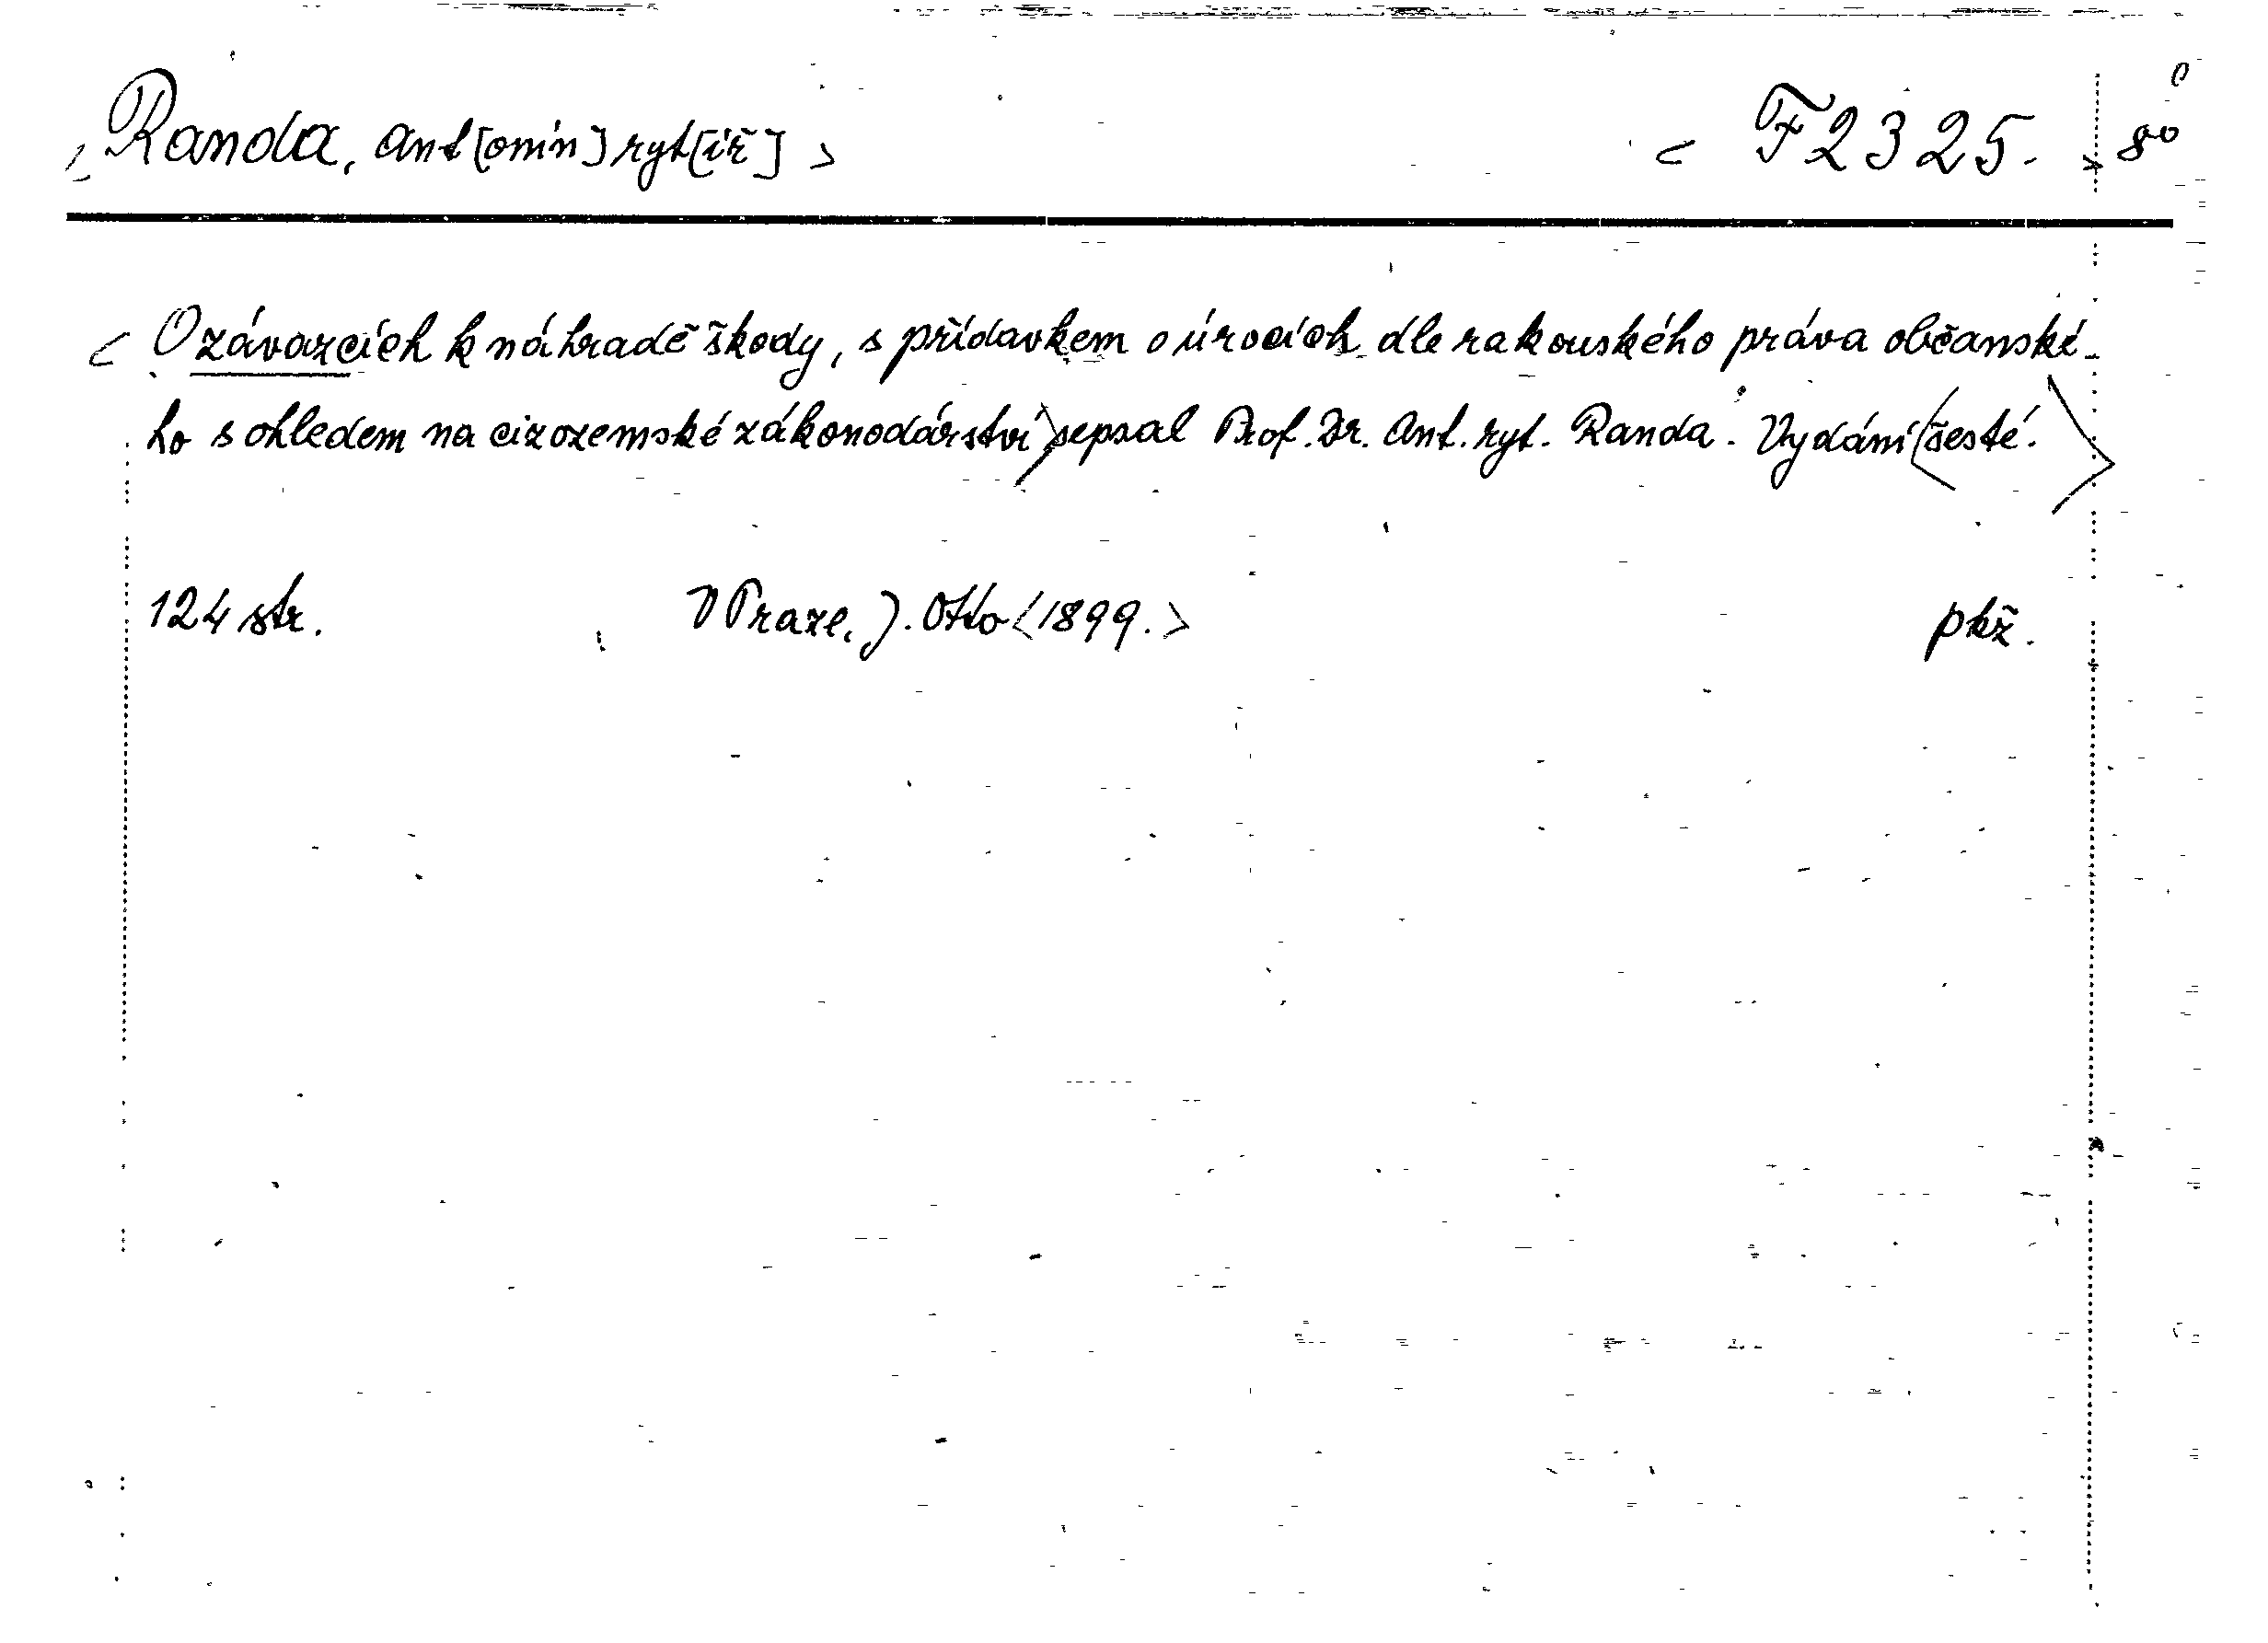 < Randa, Ant[onín] ryt[íř] > < F 2325. > 8°
< O závazcích k náhradě škody, s přídavkem o úrocích dle rakouského práva občanské-
ho s ohledem na cizozemské zákonodárství > sepsal Prof. Dr. Ant. ryt. Randa. Vydání < šesté. >
124 str. V Praze, J. Otto < 1899. > pkž.